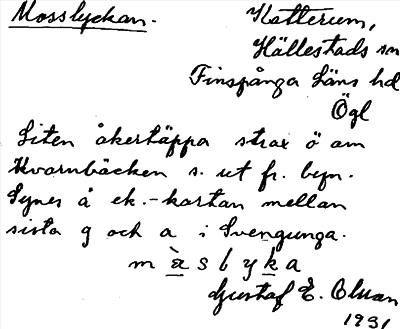 Mosslyckan.
Katterum,
Hällestads sn
Finspånga läns hd
Ögl
Liten åkertäppa strax ö om
Kvarnbäcken s. ut fr. byn.
Synes å ek.-kartan mellan
sista g och a i Svengunga.
m à s l y k a
Gustaf E. Olsson
1931